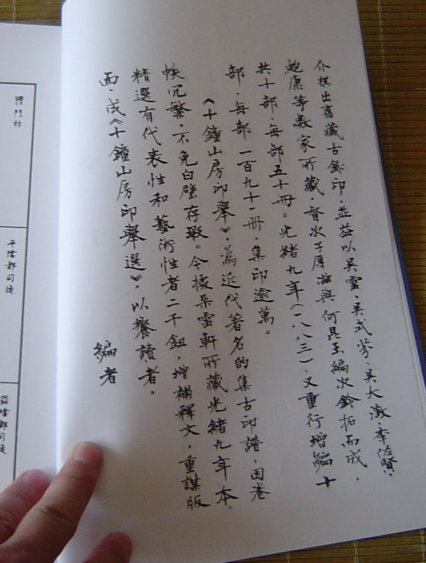 介祺出舊藏古鉨印,並益以吳雲、吳式芬、吳大澂、李佐賢、
鮑康等數家所藏,督次子厚滋與何昆玉編次鈐拓而成,
共十部,每部五十冊。光緒九年(一八八三),又重行增編十
部,每部一百九十一冊,集印逾萬。
《十鐘山房印舉》,為近代著名的集古印譜,因卷
帙冗繁,不免白璧存瑕。今據朵雲軒所藏光緒九年本,
精選有代表性和藝術性者二千鈕,增補釋文,重謀版
面,成《十鐘山房印舉選》,以饗讀者。
編者
平陰都司徒